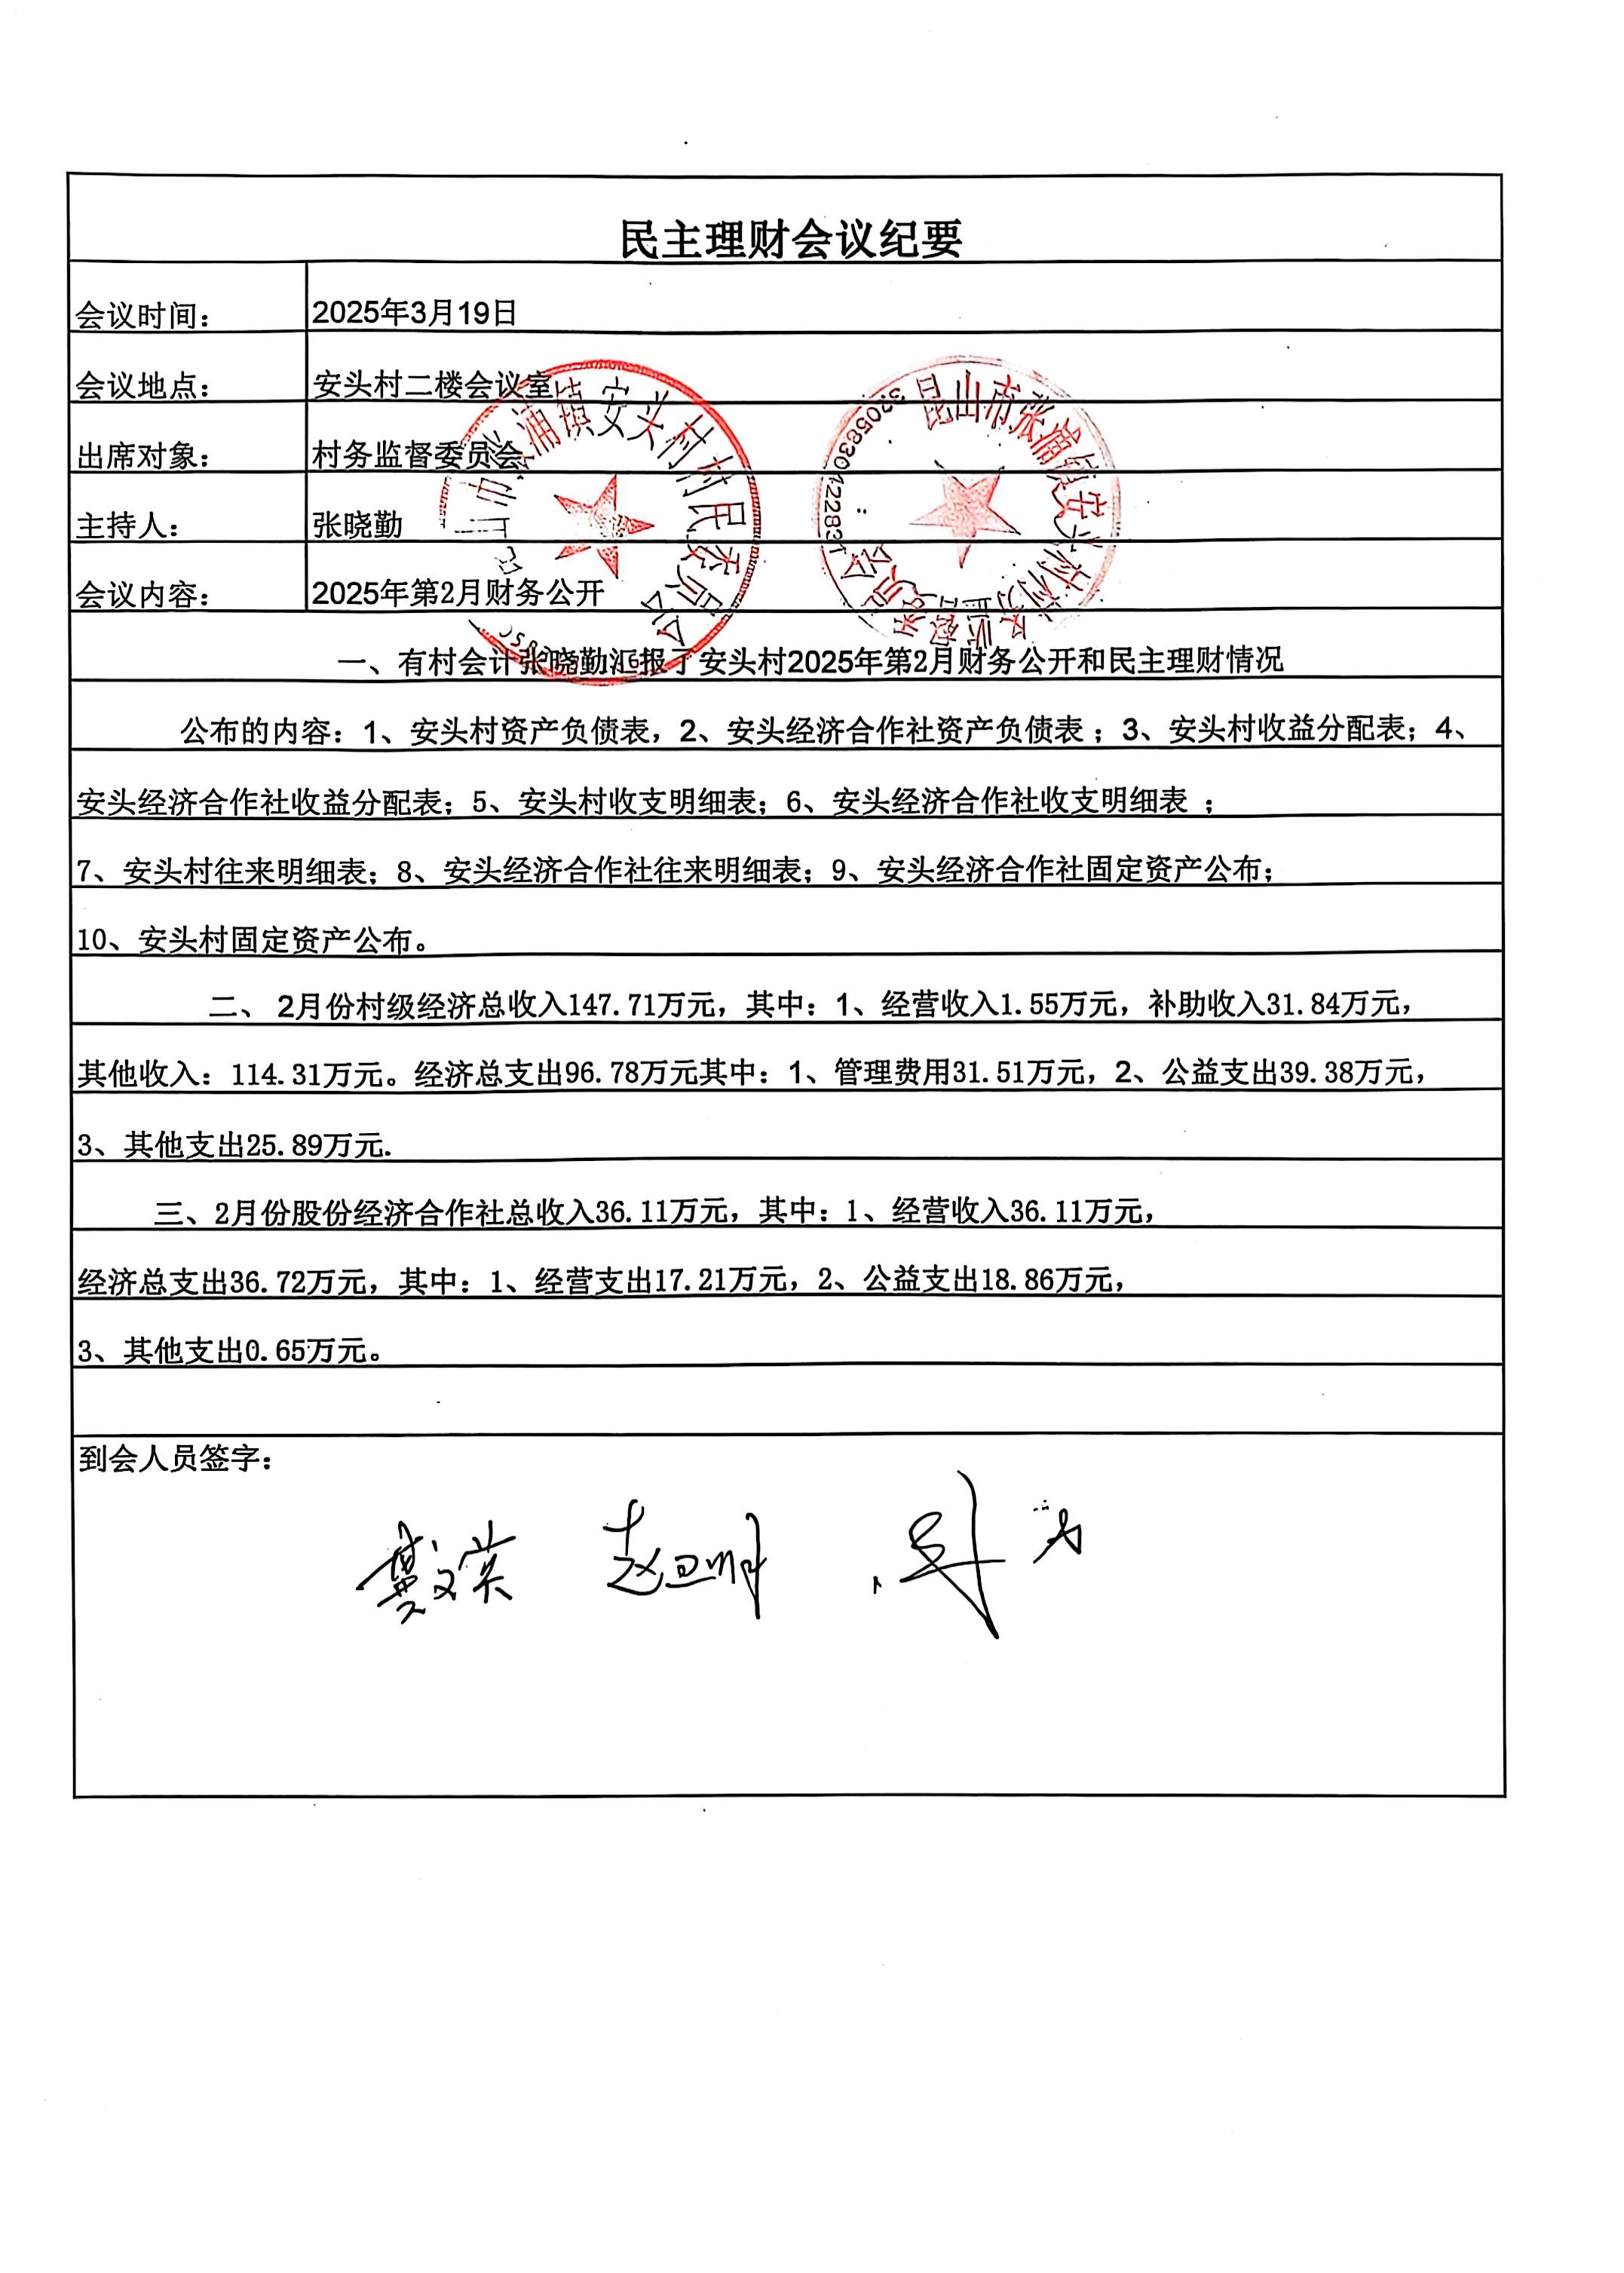 民主理财会议纪要
会议时间： 2025年3月19日
会议地点： 安头村二楼会议室
出席对象： 村务监督委员会
主持人： 张晓勤
会议内容： 2025年第2月财务公开
一、有村会计张晓勤汇报了安头村2025年第2月财务公开和民主理财情况
公布的内容：1、安头村资产负债表，2、安头经济合作社资产负债表 ；3、安头村收益分配表；4、
安头经济合作社收益分配表；5、安头村收支明细表；6、安头经济合作社收支明细表 ；
7、安头村往来明细表；8、安头经济合作社往来明细表；9、安头经济合作社固定资产公布；
10、安头村固定资产公布。
二、 2月份村级经济总收入147.71万元，其中：1、经营收入1.55万元，补助收入31.84万元，
其他收入：114.31万元。经济总支出96.78万元其中：1、管理费用31.51万元，2、公益支出39.38万元，
3、其他支出25.89万元.
三、2月份股份经济合作社总收入36.11万元，其中：1、经营收入36.11万元，
经济总支出36.72万元，其中：1、经营支出17.21万元，2、公益支出18.86万元，
3、其他支出0.65万元。
到会人员签字：
山市张浦镇安头村村民委员会
昆山市张浦镇安头村村务监督委员会